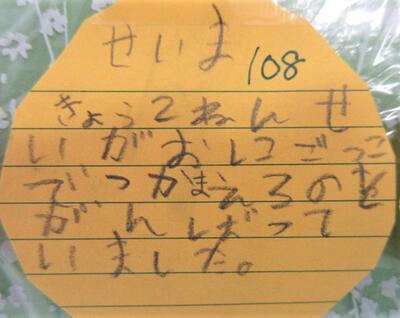 せいま
108
きょう2ねんせ
いがおにごっこ
でつかまえるのを
がんばって
いました。